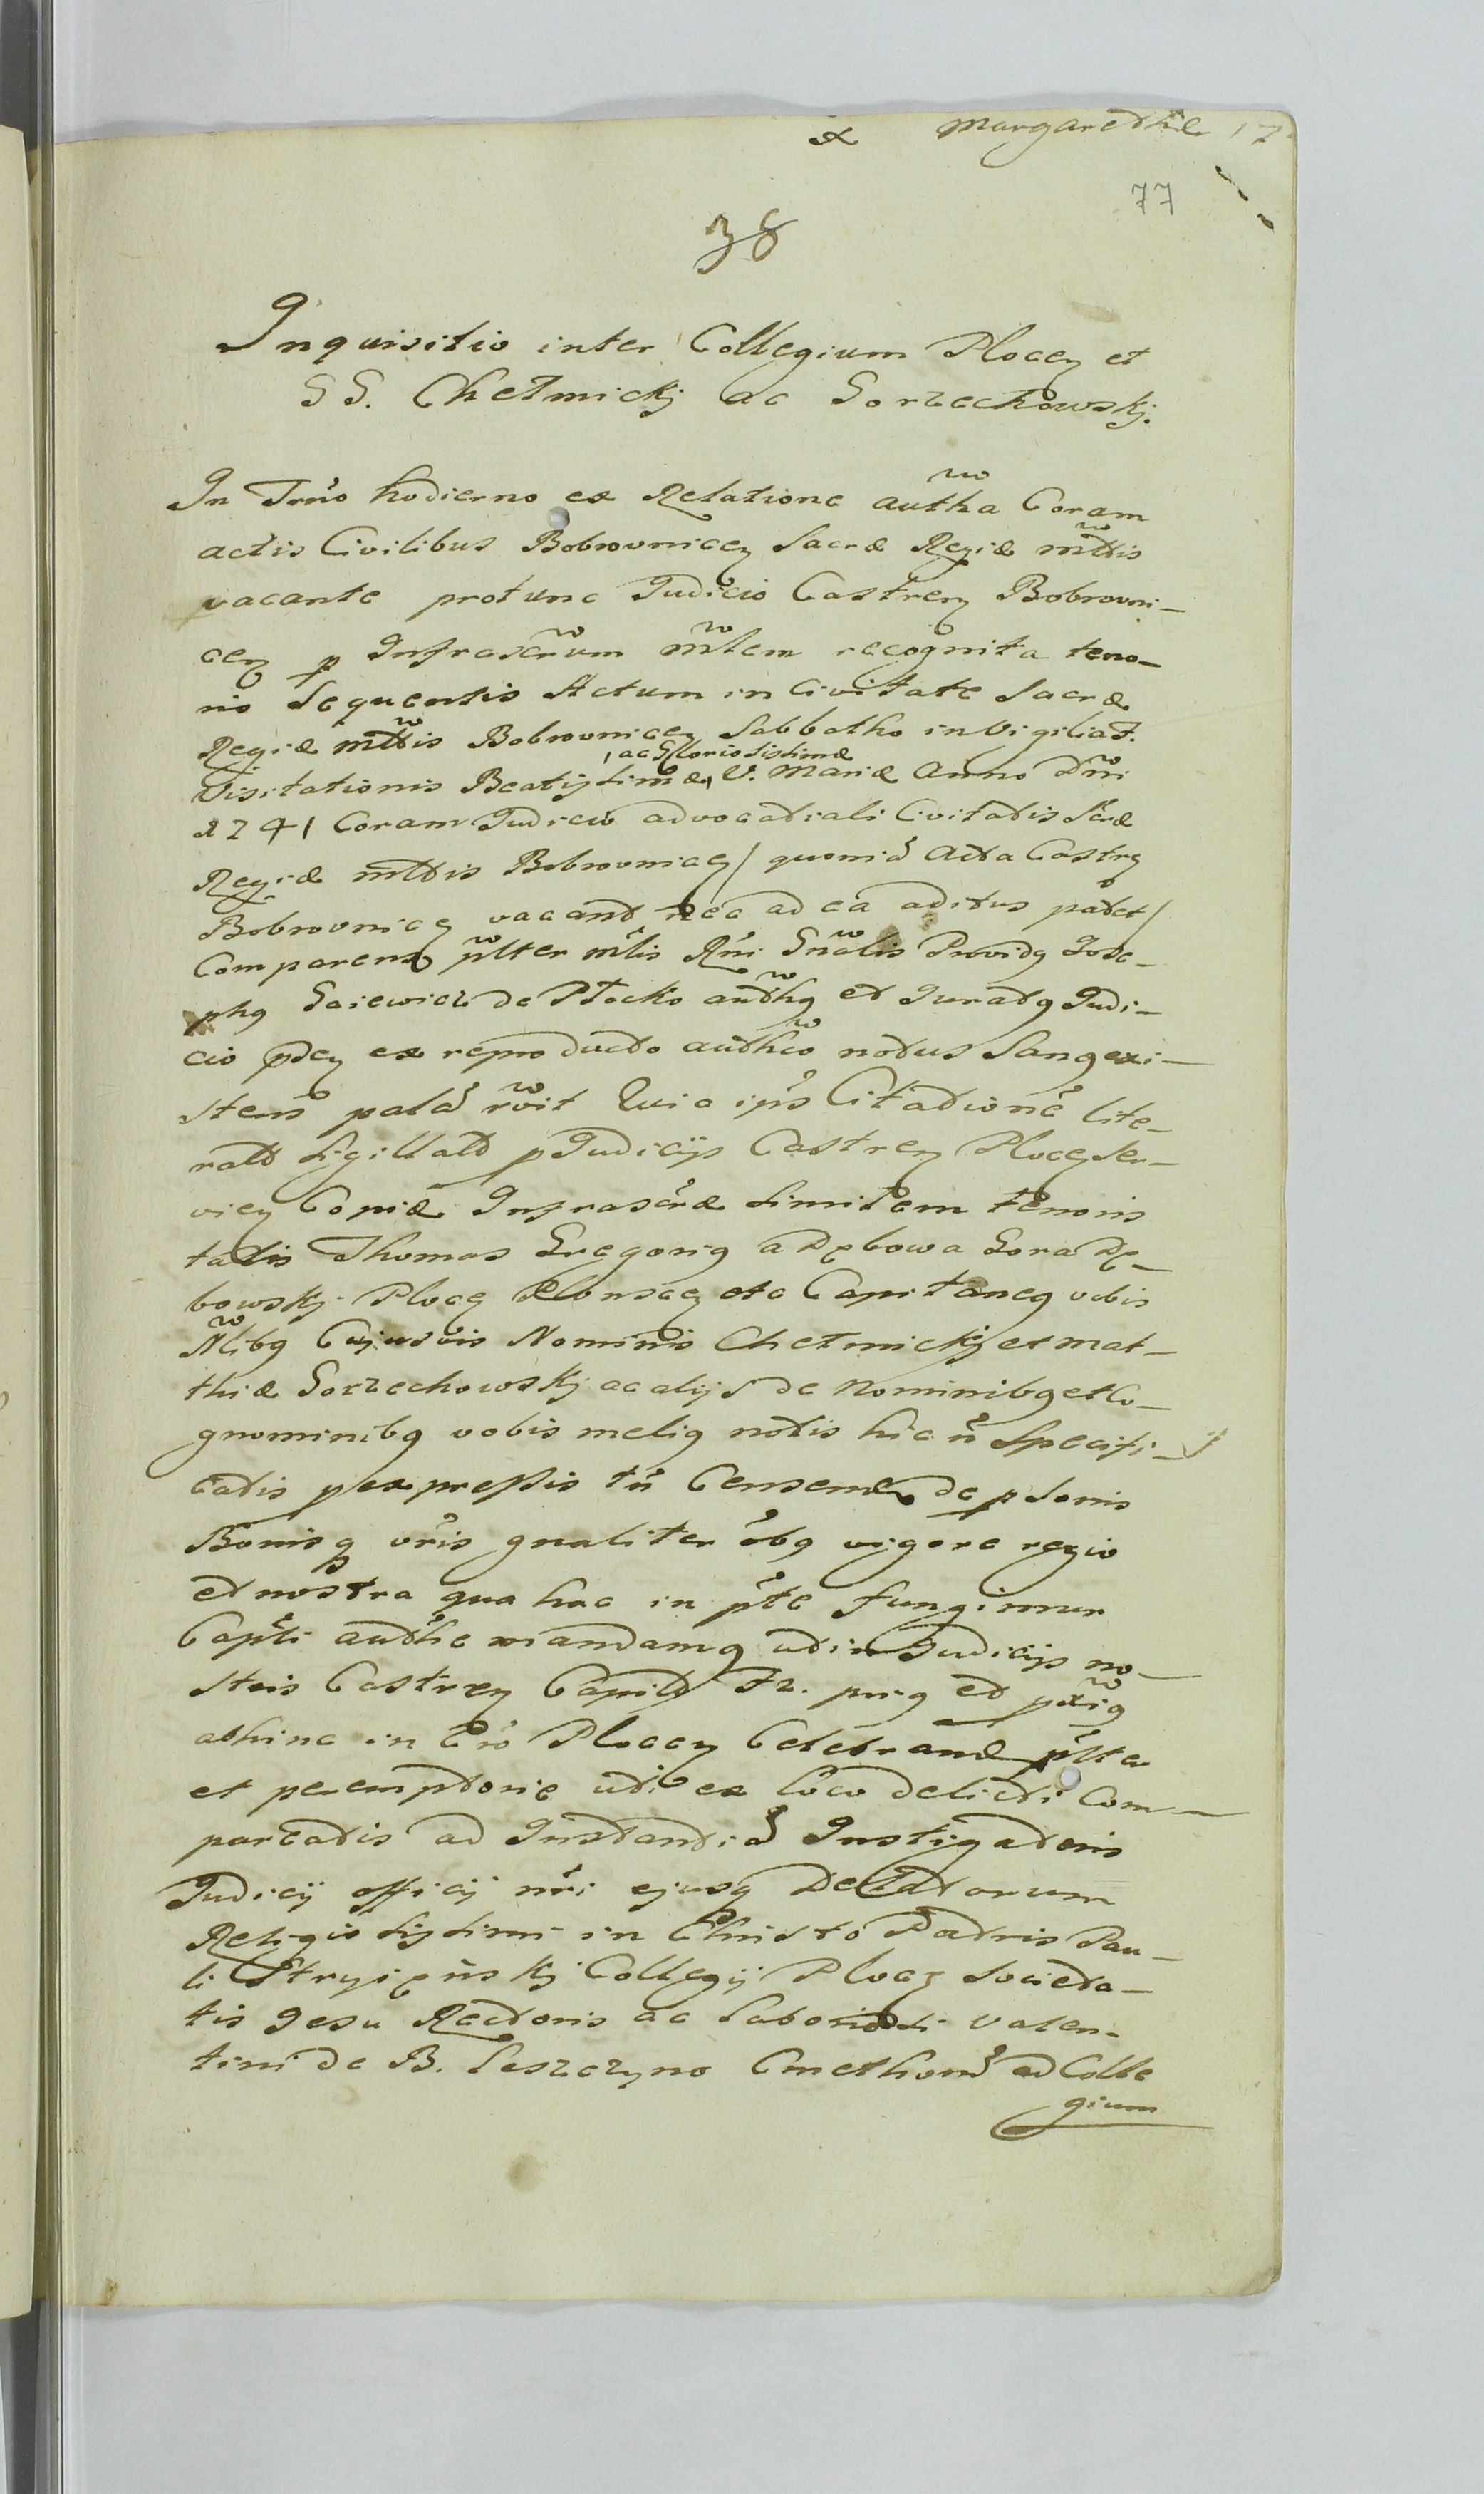 x Margarethæ 17
77
38
Inquisitio inter Collegium Plocen et
GG. Chełmickj ac Gorzechowskj.
In Trno hodierno ex Relatione autha Coram
actis Civilibus Bobrovnicen Sacræ Regiæ mttis
vacante protunc Judicio Castren Bobrovni-
cen p Infrascrum mtem recognita teno-
ris Sequentis Actum in Civitate Sacræ
Regiæ mttis Bobrovnicen Sabbatho in Vigilia f.
, ac Gloriosissimæ
Visitationis Beatissimæ, V. Mariæ Anno Dni
1741 Coram Judicio advocatiali Civitatis Scræ
Regiæ mttis Bobrovnicen / quoniã Acta Castren
Bobrovnicen vacant nec ad ea aditus patet /
Comparens plter mlis Rni Gnalis Providg Jose-
phg Gaiewicz de Płocko authg et Juratg Judi-
cio pden ex reproducto authco notus Sang exi-
stens palã rvit Quia ips Citationẽ lite-
ratt Sigillatt p Judicijs Castren Plocen Ser-
vien Copiæ Infrascræ Similem tenoris
talis Thomas Gregorig a Dębowa Gora Dę-
bowskj Plocen Płonscen etc Capitaneg vobis
Nlibg Cujusvis Nominis Chełmickj et Mat-
thiæ Gorzechowskj ac alijs de Nominibg et Co-
gnominibg vobis melig notis hic ñ Specifi-
catis p expressis tñ Censend de psonis
Bonisq vris gnaliter obg vigore regio
et nostra qua hac in pte fungimur
Capli authe mandamg ut in Judicijs no-
stris Castren Capit Fr. prig et pxig
abhinc in Cro Plocen Celebrand plter
et peremptorie uti ex loco delicti Com-
pareatis ad Instantiã Instigatoris
Judicij officij nri ejusq Delatorum
Religiosissimi in Christo Patris Pau-
li Stryięnskj Collegij Plocen Societa-
tis Jesu Rectoris ac Laboriosi Valen-
tini de B. Leszczyno Cmethonis ad Colle
gium